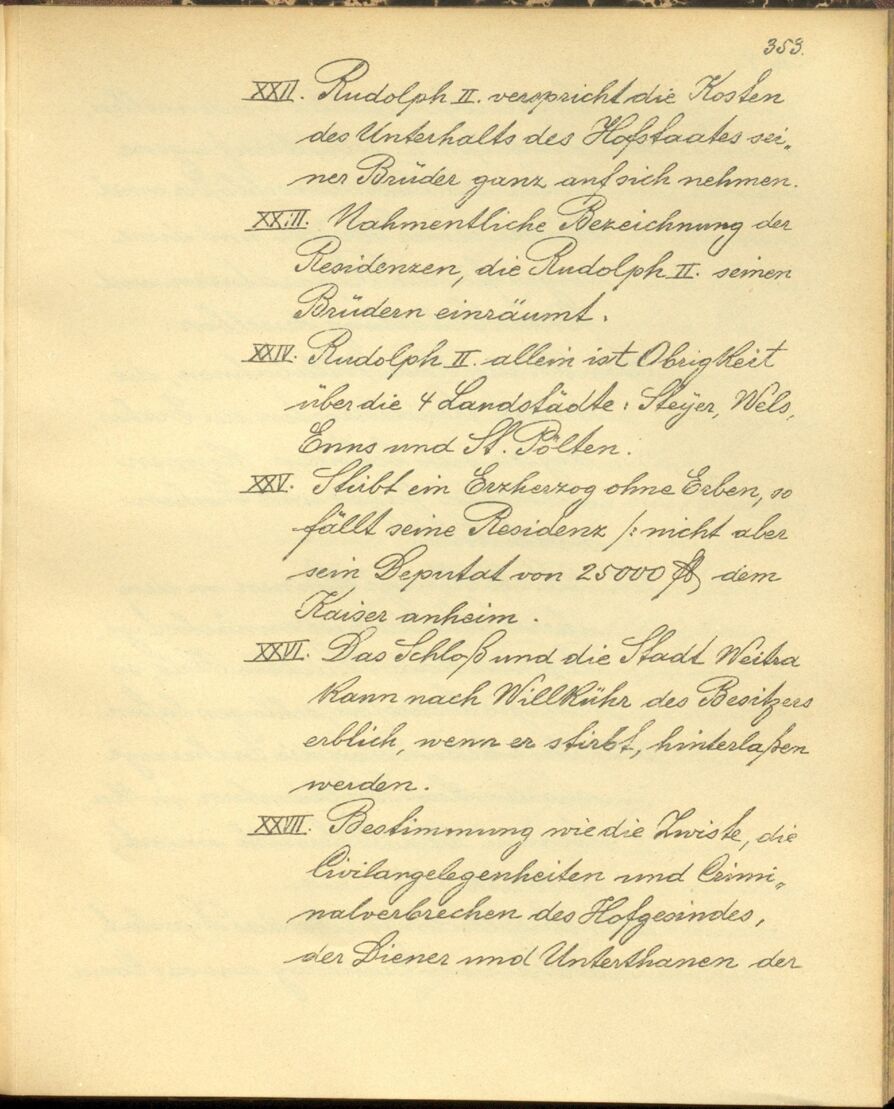 353.
XXII. Rudolph II. verspricht die Kosten
des Unterhalts des Hofstaates sei„
ner Brüder ganz auf sich nehmen.
XXIII. Nahmentliche Bezeichnung der
Residenzen, die Rudolph II. seinen
Brüdern einräumt.
XXIV. Rudolph II. allein ist Obrigkeit
über die 4 Landstädte: Steÿer, Wels,
Enns und St. Pölten.
XXV. Stirbt ein Erzherzog ohne Erben, so
fällt seine Residenz /: nicht aber
sein Deputat von 25000 fl, dem
Kaiser anheim.
XXVI. Das Schloß und die Stadt Weitra
kann nach Willkühr des Besitzers
erblich, wenn er stirbt, hinterlaßen
werden.
XXVII. Bestimmung wie die Zwiste, die
Civilangelegenheiten und Crimi„
nalverbrechen des Hofgesindes,
der Diener und Unterthanen der